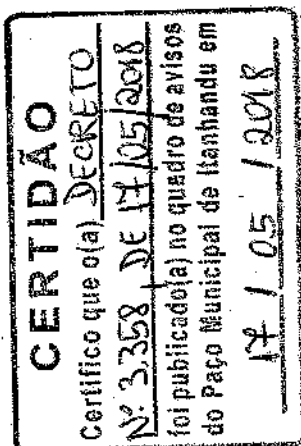 CERTIDÃO
Certifico que o(a) DECRETO
Nº 3.358, DE 17/05/2018
foi publicado(a) no quadro de avisos
do Paço Municipal de Itanhandu em
17 / 05 / 2018